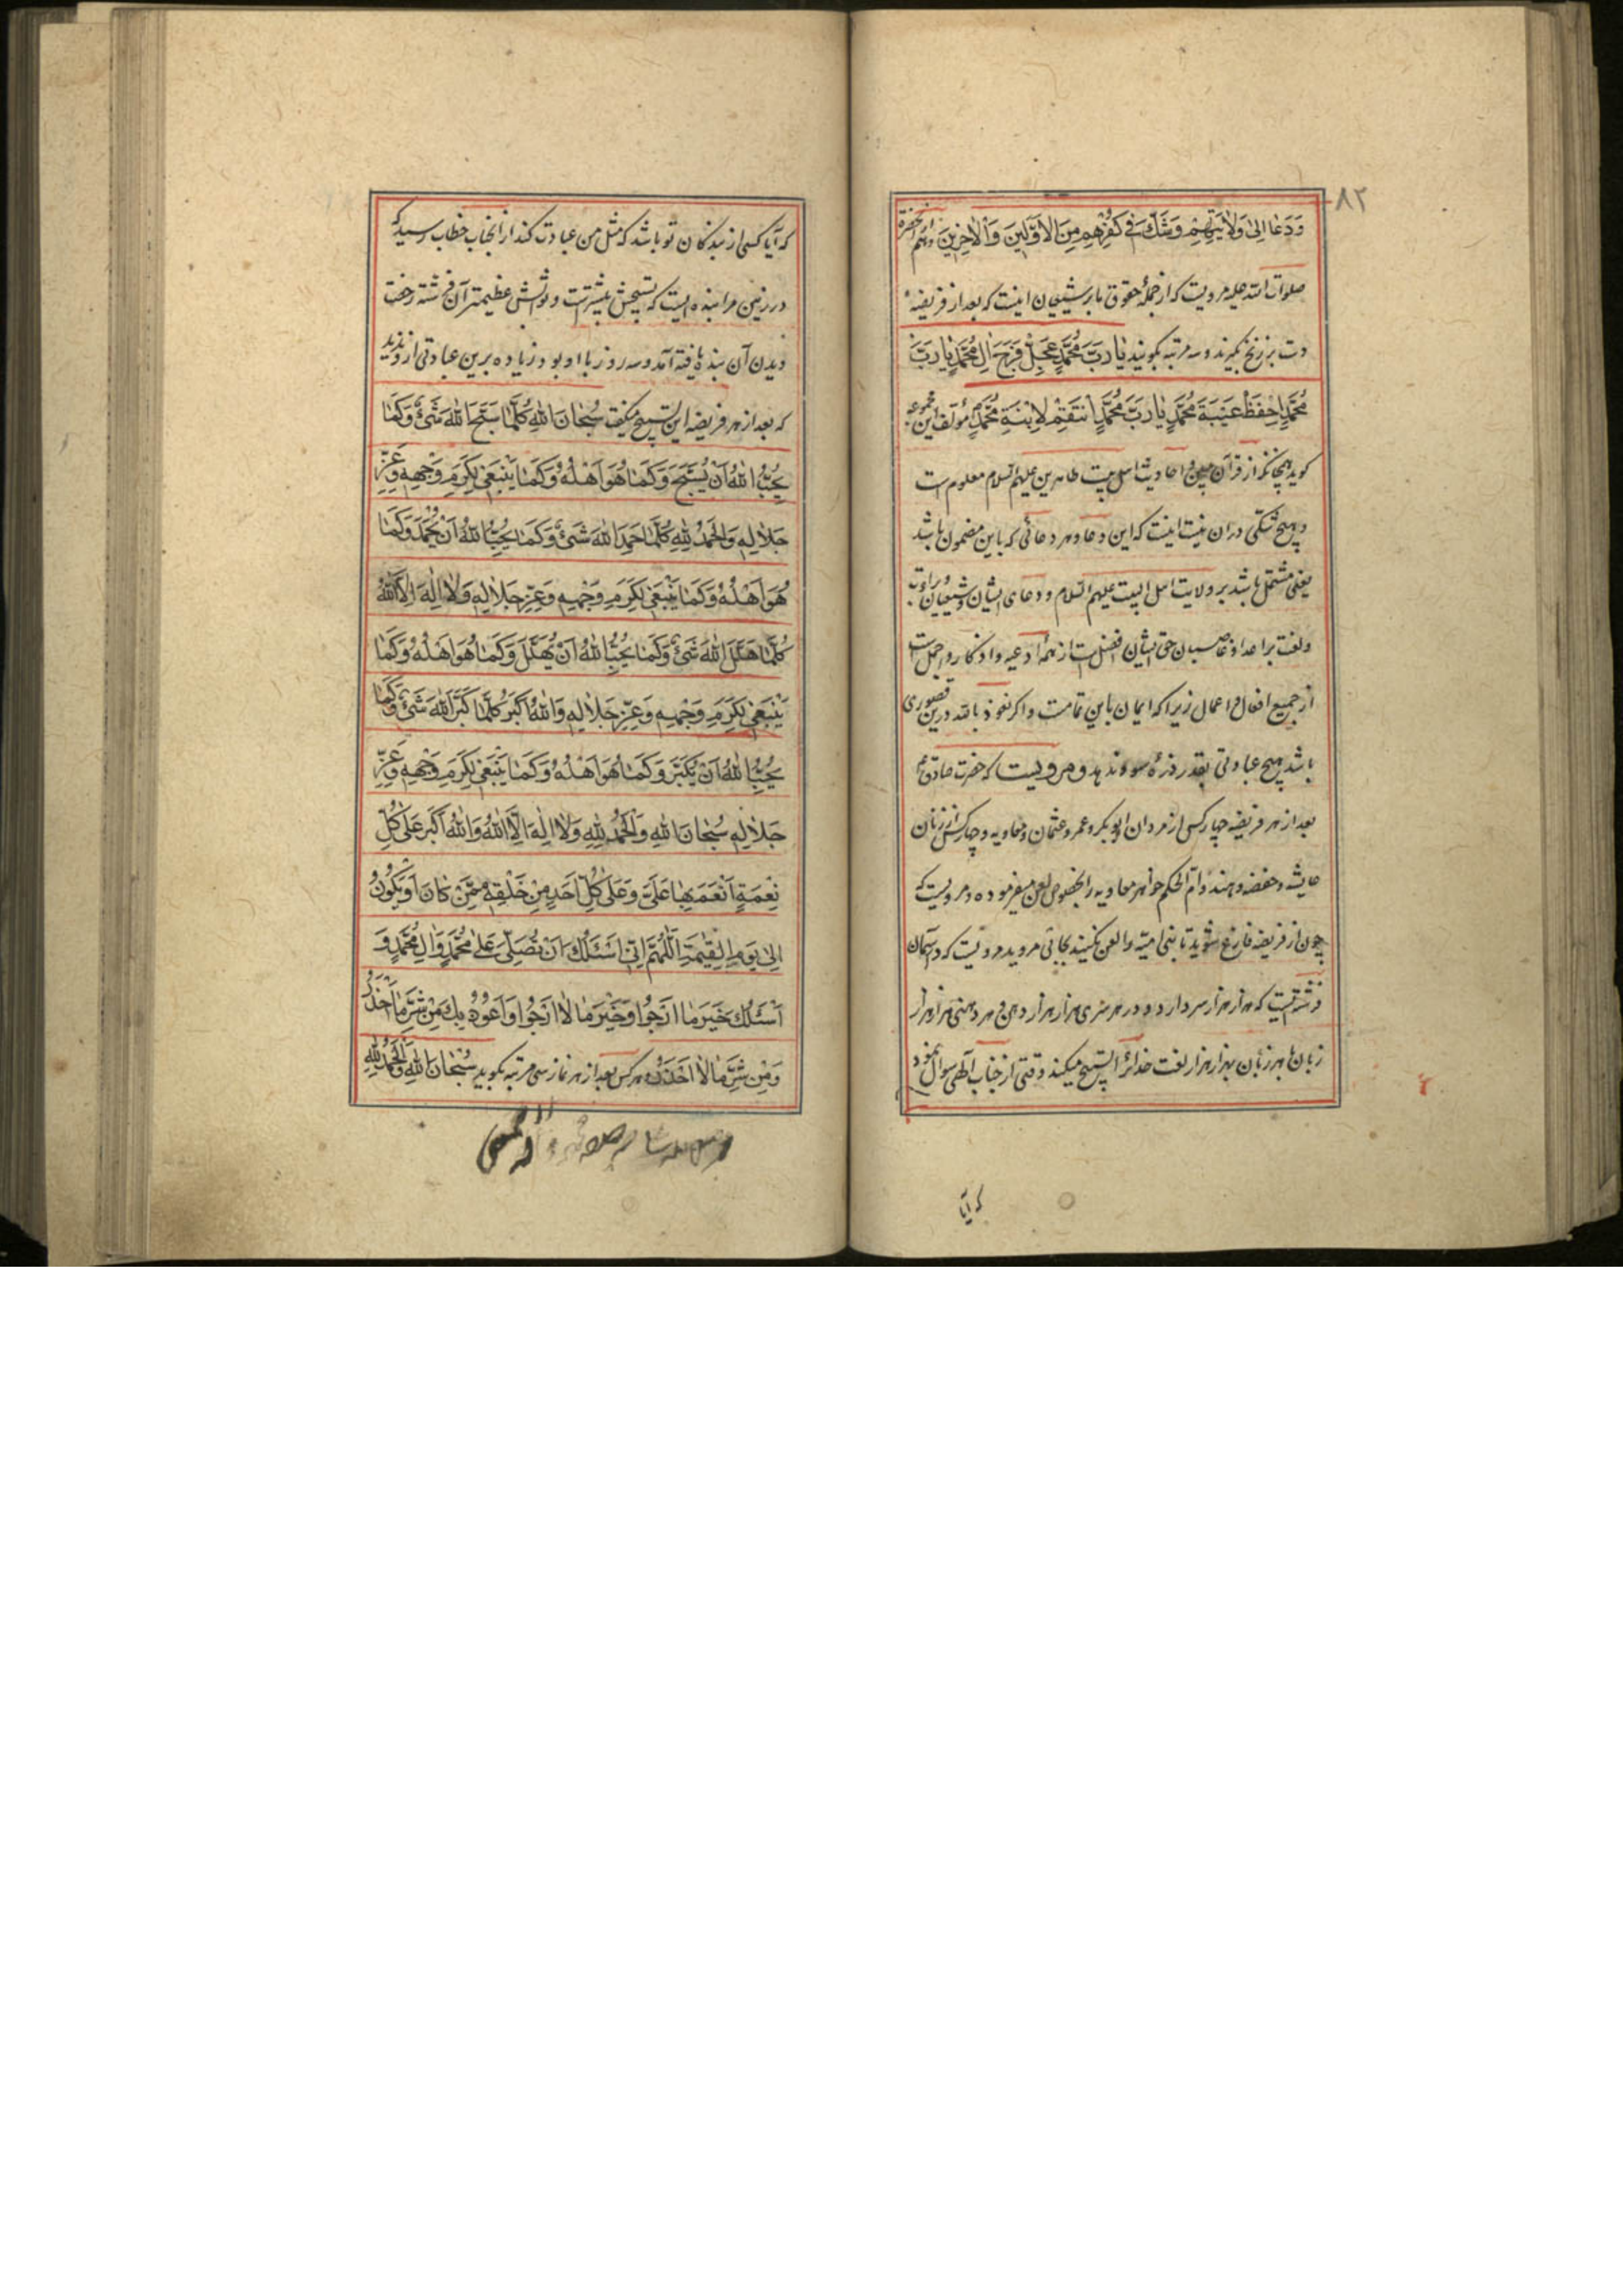 ٨٢
وَدَعَا اِلىٰ وَلٰايَتِهِمْ وَشَكَّ فى كُفْرِهِمْ مِنَ الْاَوَّلينَ وَالْاٰخِرينَ وهم از آنحضرة
صلوات الله علیه مرویست که از جملهٔ حقوق ما بر شیعیان اینست که بعد از فریضهٔ
دست بر زنخ بگیرند و سه مرتبه بگویند يٰا رَبَّ مُحَمَّدٍ عَجِّلْ فَرَجَ اٰلِ مُحَمَّدٍ يٰا رَبَّ
مُحَمَّدٍ اِحْفَظْ غَيْبَةَ مُحَمَّدٍ يٰا رَبَّ مُحَمَّدٍ اِنتَقِمْ لِاِبْنَةِ مُحَمَّدٍ مؤلف این مجموعه
کوید چنانکه از قرآن مبین و احادیث اهل بیت طاهرین علیهم السلام معلوم است
و هیچ شکی در ان نیست اینست که این دعا و هر دعائی که باین مضمون باشد
یعنی مشتمل باشد بر ولایت اهل البیت علیهم السلام و دعای ایشان و شیعیان و براءت
ولعنت بر اعدا و غاصبان حق ایشان افضل است از همه ادعیه و اذکار و اجمل است
از جمیع افعال و اعمال زیرا که ایمان باین تمامست و اکر نعوذ بالله درین قصوری
باشد هیچ عبادتی بقدر ذرهٔ سود ندهد و مرویست که حضرت صادق ع
بعد از هر فریضه چهار کس از مردان ابو بکر و عمر و عثمان و معاویه و چهار کس از زنان
عایشه و حفصه و هند و ام الحکم خواهر معاویه را بخصوص لعن میفرموده و مرویست که
چون از فریضه فارغ شوید تا بنی امیه را لعن نکنید بجائی مروید مرویست که در آسمان
فرشته ایست که هزار هزار سر دارد و در هر سری هزار هزار دهن و هر دهنی هزار هزار
زبان با هر زبان بهزار هزار لغت خدا را تسبیح میکند وقتی از جناب الهی سوال نمود
که آیا
که آیا کسی از بندکان تو باشد که مثل من عبادت کند از آنجناب خطاب رسید که
در زمین مرا بنده ایست که تسبیحش بیشتر است و ثوابش عظیمتر آن فرشته رخصت
دیدن آن بنده یافته آمد و سه روز با او بود زیاده برین عبادتی ازو ندید
که بعد از هر فریضه این تسبیح میکفت سُبْحٰانَ اللهِ كُلَّمٰا سَبَّحَ اللهَ شَىْءٌ وَكَمٰا
يُحِبُّ اللهُ اَنْ يُسَبَّحَ وَكَمٰا هُوَ اَهْلُهُ وَكَمٰا يَنْبَغى لِكَرَمِ وَجْهِهِ وَعِزِّ
جَلٰالِهِ وَالْحَمْدُ لِلّٰهِ كُلَّمٰا حَمِدَ اللهَ شَىْءٌ وَكَمٰا يُحِبُّ اللهُ اَنْ يُحْمَدَ وَكَمٰا
هُوَ اَهْلُهُ وَكَمٰا يَنْبَغى لِكَرَمِ وَجْهِهِ وَعِزِّ جَلٰالِهِ وَلٰا اِلٰهَ اِلَّا اللهُ
كُلَّمٰا هَلَّلَ اللهَ شَىْءٌ وَكَمٰا يُحِبُّ اللهُ اَنْ يُهَلَّلَ وَكَمٰا هُوَ اَهْلُهُ وَكَمٰا
يَنْبَغى لِكَرَمِ وَجْهِهِ وَعِزِّ جَلٰالِهِ وَاللهُ اَكْبَرُ كُلَّمٰا كَبَّرَ اللهَ شَىْءٌ وَكَمٰا
يُحِبُّ اللهُ اَنْ يُكَبَّرَ وَكَمٰا هُوَ اَهْلُهُ وَكَمٰا يَنْبَغى لِكَرَمِ وَجْهِهِ وَعِزِّ
جَلٰالِهِ سُبْحٰانَ اللهِ وَالْحَمْدُ لِلّٰهِ وَلٰا اِلٰهَ اِلَّا اللهُ وَاللهُ اَكْبَرُ عَلىٰ كُلِّ
نِعْمَةٍ اَنْعَمَ بِهٰا عَلَىَّ وَعَلىٰ كُلِّ اَحَدٍ مِنْ خَلْقِهِ مِمَّنْ كٰانَ اَوْ يَكُونُ
اِلىٰ يَوْمِ الْقِيٰمَةِ اَللّٰهُمَّ اِنّى اَسْئَلُكَ اَنْ تُصَلِّىَ عَلىٰ مُحَمَّدٍ وَاٰلِ مُحَمَّدٍ وَ
اَسْئَلُكَ خَيْرَ مٰا اَرْجُوا وَخَيْرَ مٰا لٰا اَرْجُوا وَاَعُوذُ بِكَ مِنْ شَرِّ مٰا اَحْذَرُ
وَمِنْ شَرِّ مٰا لٰا اَحْذَرُ هر کس بعد از هر نماز سی مرتبه بکوید سُبْحٰانَ اللهِ وَالْحَمْدُ لِلّٰهِ